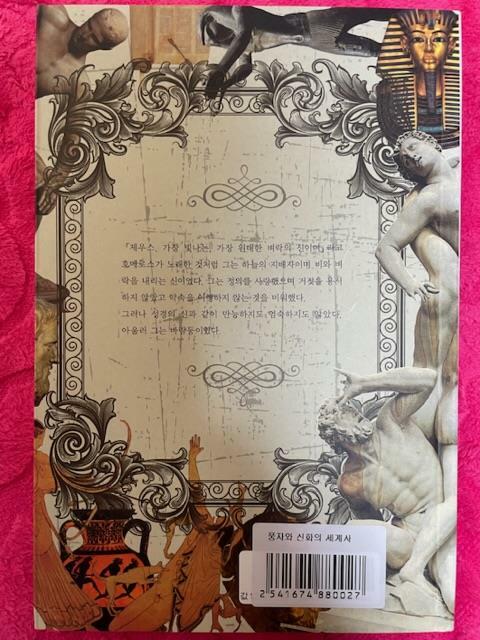 「제우스, 가장 빛나는, 가장 위대한 벼락의 신이며, 라고
호메로스가 노래한 것처럼 그는 하늘의 지배자이며 비와 벼
락을 내리는 신이었다. 그는 정의를 사랑했으며 거짓을 용서
하지 않았고 약속을 이행하지 않는 것을 미워했다.
그러나 성경의 신과 같이 만능하지도 엄숙하지도 않았다.
아울러 그는 바람둥이였다.
풍자와 신화의 세계사
값
2 541674 880027